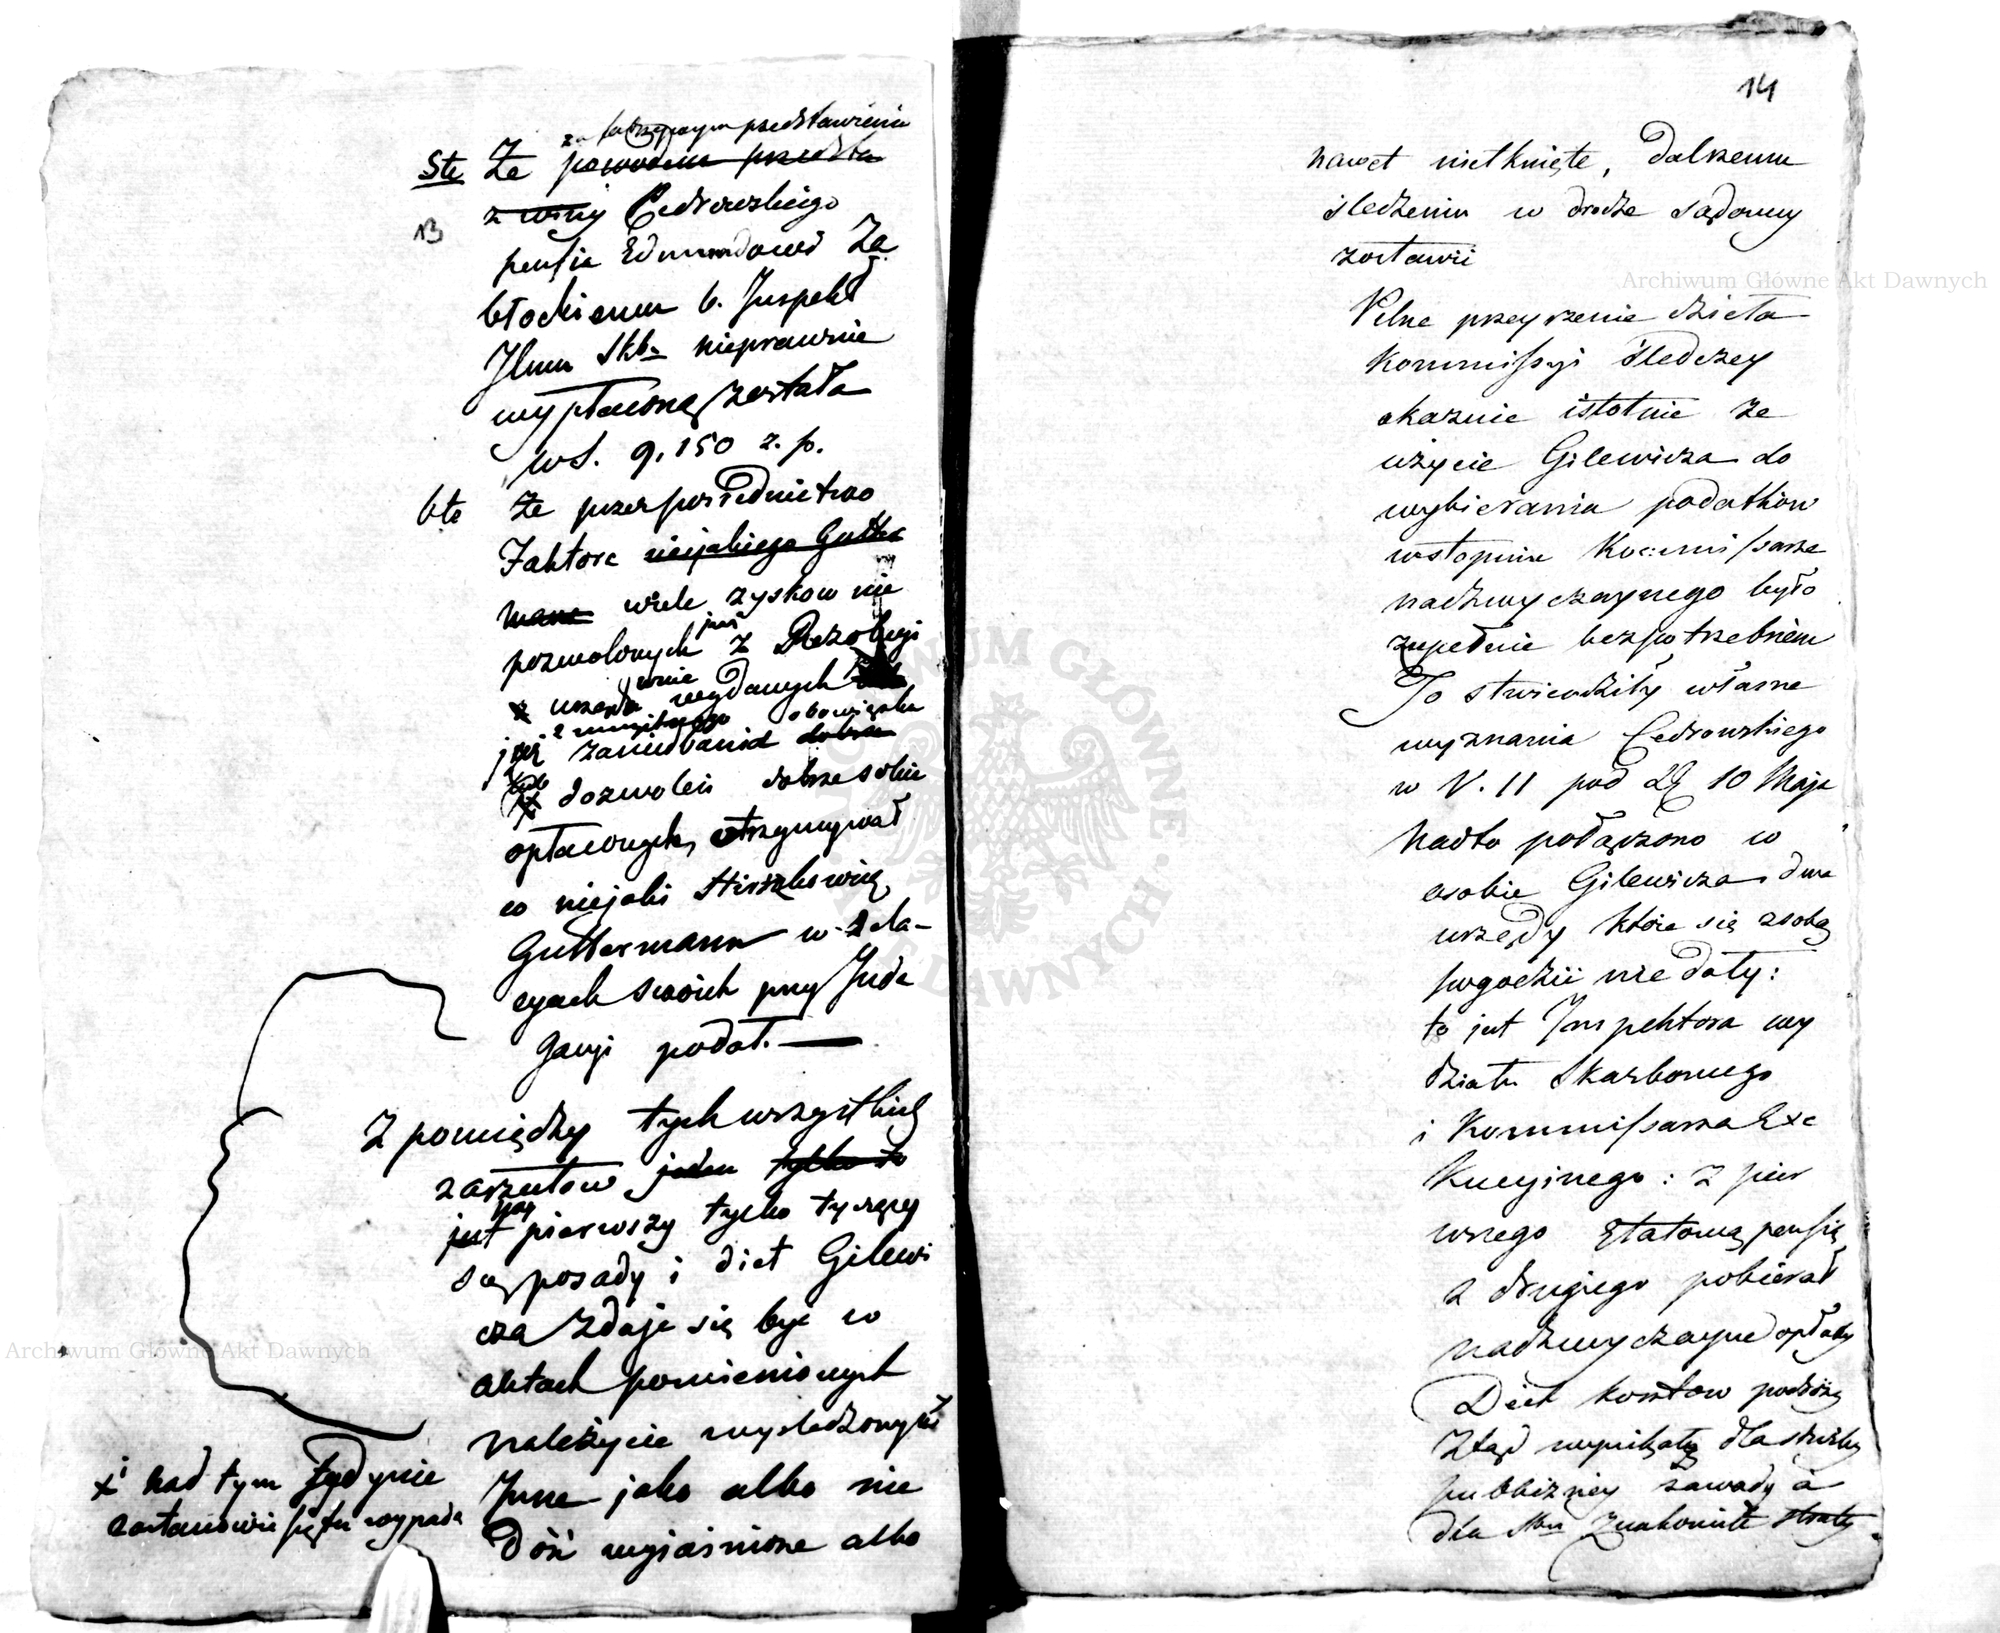 za fałszywym przedstawieniem
5te Że powodem przedsta
z winy Cedrowskiego
NB
pensia Edmundowi Za
błockiemu b. Inspekt
Ilnu Skb. nieprawnie
wypłaconą została
w S. 9,150 z. p.
6te Że przez pośrednictwo
Faktora niejakiego Gutter
mana wiele zysków nie
pozwolonych już z Rezolucji
z urzędownie wydanych
z umyślnego obowiązku
już zaniedbania dobrze
lub
dozwoleń dobrze sobie
opłaconych, otrzymywał
co niejaki Hirszkowicz
Guttermann w Rela-
cyach swoich przy Inda
gacyi podał. —
Z pomiędzy tych wszystkich
zarzutów jeden tylko to
jest pierwszy tylko tyczący
się posady i diet Gilewi
cza zdaje się być w
aktach pomienionych
należycie wyśledzonym
Inne jako albo nie
Dość wyjaśnione albo
x i nad tym jedynie
zastanowić się tu wypada
14
nawet nietknięte, dalszemu
śledzeniu w drodze sądowey
zostawić
Pilne przeyrzenie dzieła
Kommissyi Śledczey
okazuie istotnie że
użycie Gilewicza do
wybierania podatków
w stopniu Kommissarza
nadzwyczaynego było
zupełnie bezpotrzebnem
To stwierdziły własne
wyznania Cedrowskiego
w V. 11 pod 10 Maja
Nadto połączono w
osobie Gilewicza dwa
urzędy które się z sobą
pogodzić nie dały:
to jest Inspektora wy
działu Skarbowego
i Kommissarza Exe
kucyinego: z pier
wszego Etatową pensią
z drugiego pobierał
nadzwyczayne opłaty
Diet kosztów podróży
Ztąd wynikały dla służby
publiczney zawady a
dla Sbu znakomite straty
Archiwum Główne Akt Dawnych
Archiwum Główne Akt Dawnych
ARCHIWUM GŁÓWNE AKT DAWNYCH